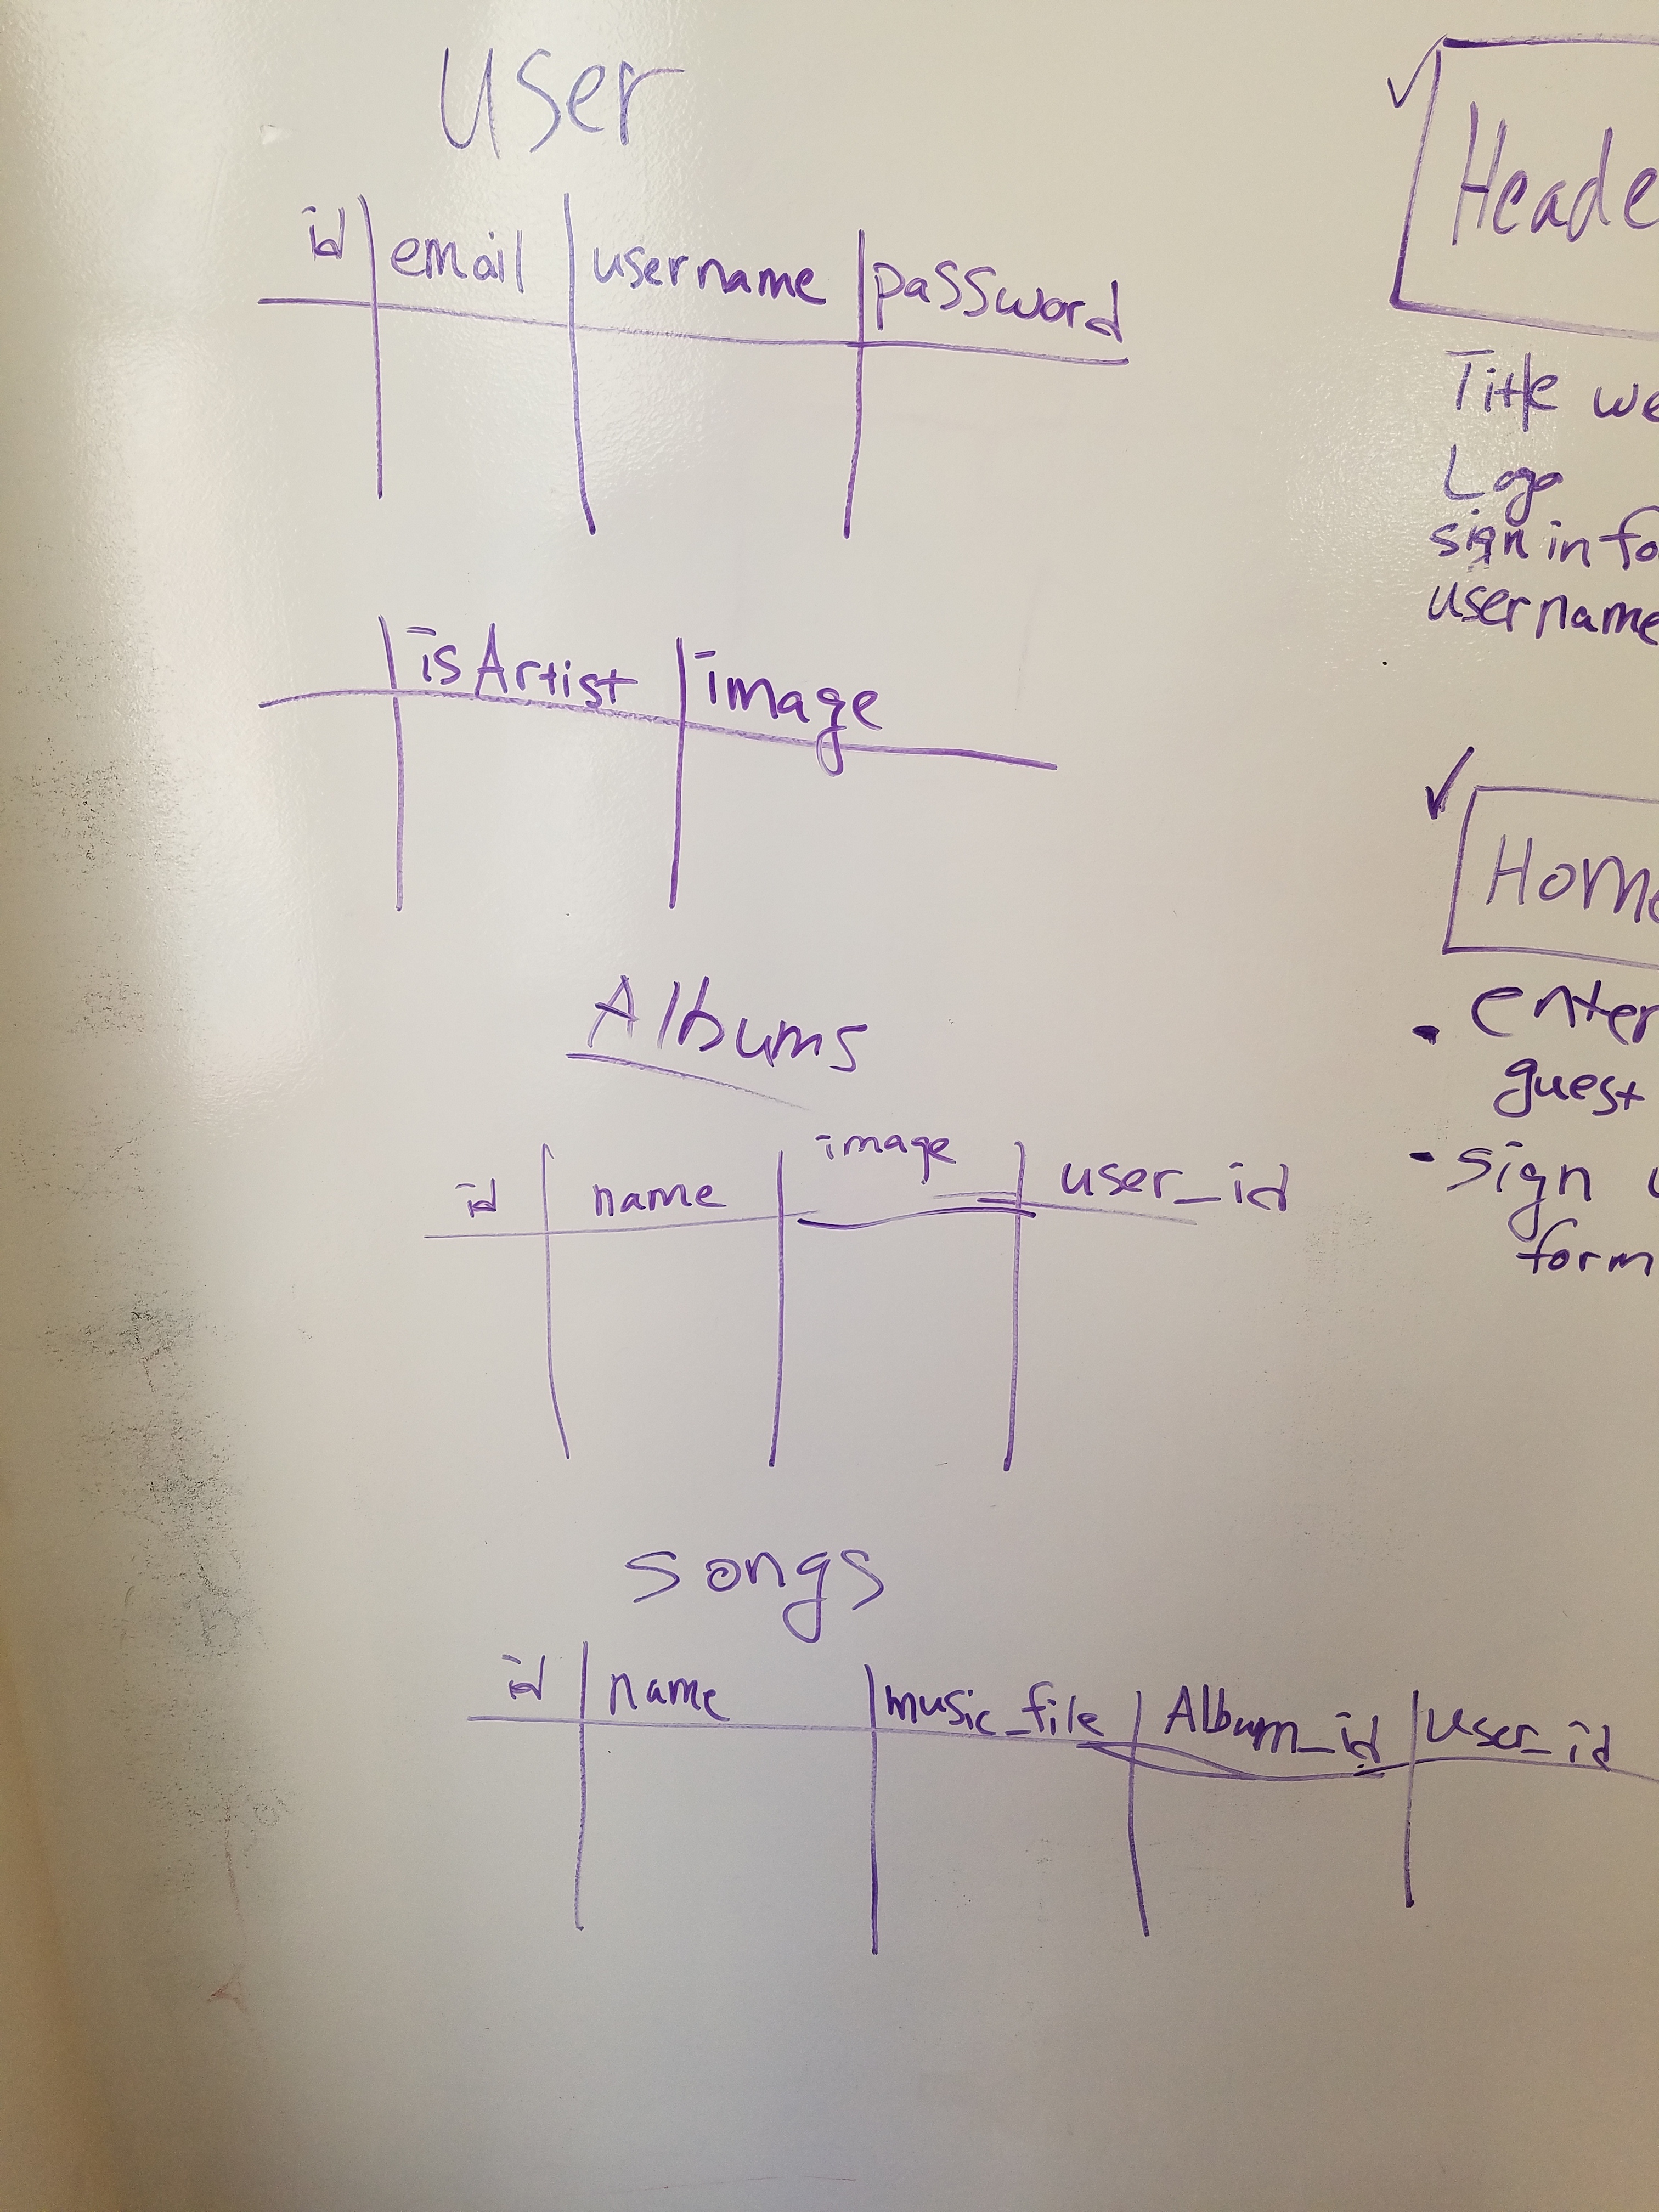 User
id email username password
isArtist image
Albums
id name image user_id
songs
id name music_file Album_id user_id
Heade
Title we
Logo
sign in fo
username
Home
• enter
guest
- sign u
form